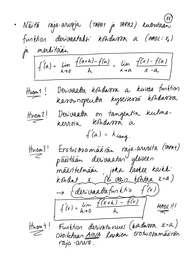 • Näitä raja-arvoja (TAPA1 ja TAPA2) kutsutaan
funktion derivaataksi kohdassa a (MAOL: x₀)
ja merkitään
f'(a) = lim h→0 f(a+h) - f(a) / h = lim x→a f(x) - f(a) / x - a
Huom1! Derivaatta kohdassa a kuvaa funktion
kasvunopeutta kyseisessä kohdassa
Huom2! Derivaatta on tangentin kulma-
kerroin kohdassa a
f'(a) = k tang.
Huom3! Erotusosamäärän raja-arvosta (TAPA1)
päästään derivaatan yleiseen
määritelmään, joka laskee kaikki
kohdat x
→ derivaattafunktio f'(x)
f'(x) = lim h→0 f(x+h) - f(x) / h MAOL!!!
Huom4! Funktion derivoituvuus (kohdassa x=a)
osoitetaan AINA laskien erotusosamäärän
raja-arvo.